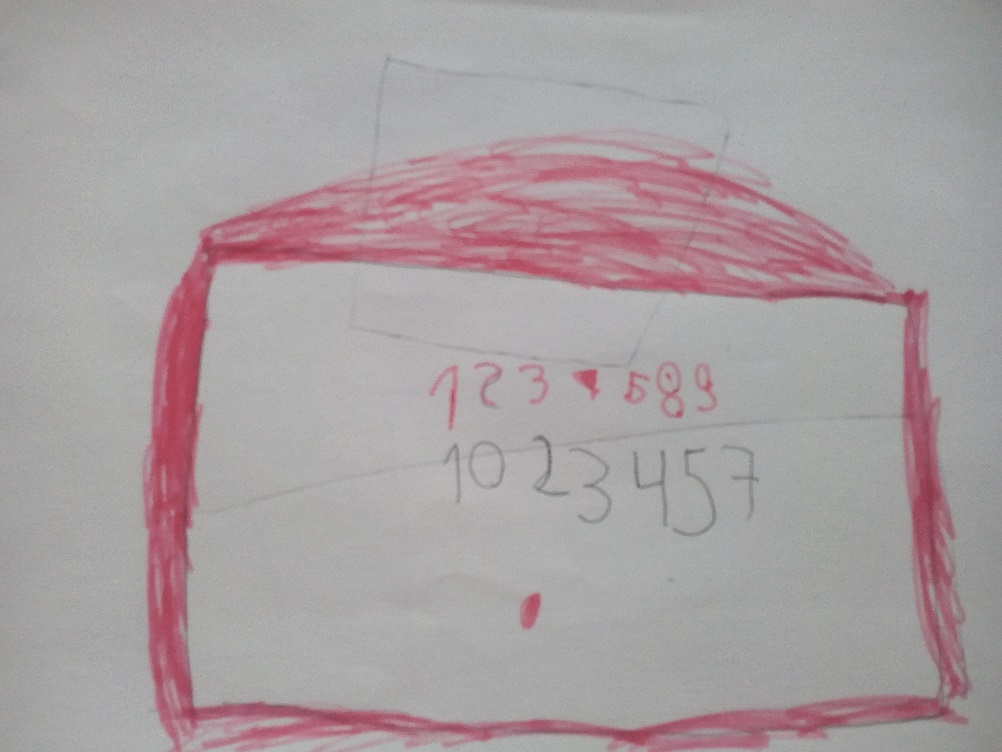 123 589
1023457